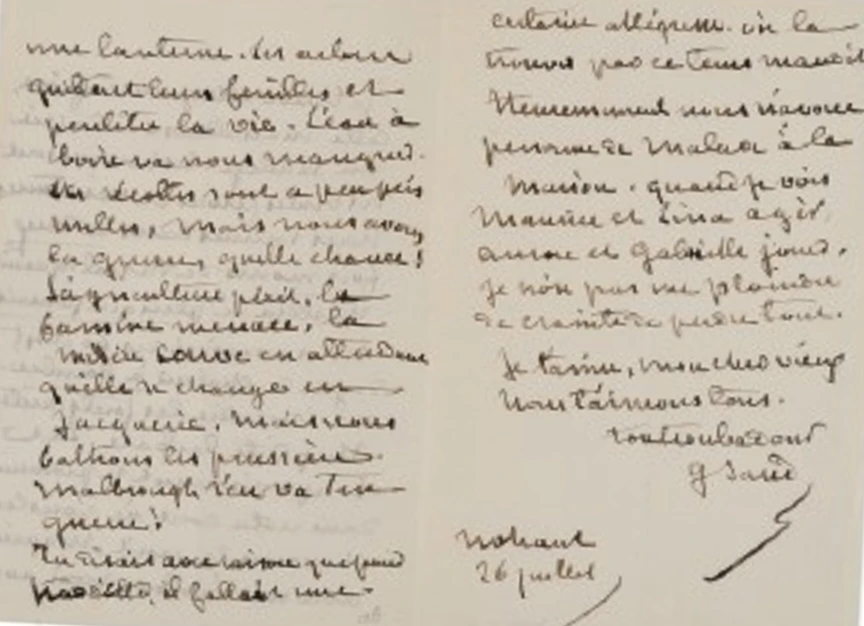 une lanterne. Les arbres
quittent leurs feuilles et
perdent la vie. L'eau à
boire va nous manquer.
les récoltes sont a peu près
nulles, mais nous avons
la guerre, quelle chance!
L'agriculture périt, la
famine menace, la
misère couve en attendant
qu'elle se change en
Jacquerie. mais nous
battrons les prussiens.
Malbrough s'en va t'en
guerre!
Tu disais avec raison que pour
travailler, il fallait une
certaine allégresse. où la
trouver par ce tems maudit
Heureusement nous n'avons
personne de malade à la
maison. quand je vois
Maurice et Lina agir,
aurore et Gabrielle jouer,
je n'ose pas me plaindre
de crainte de perdre tout.
Je t'aime, mon cher vieux
nous t'aimons tous.
ton troubadour
G Sand
Nohant
26 juillet